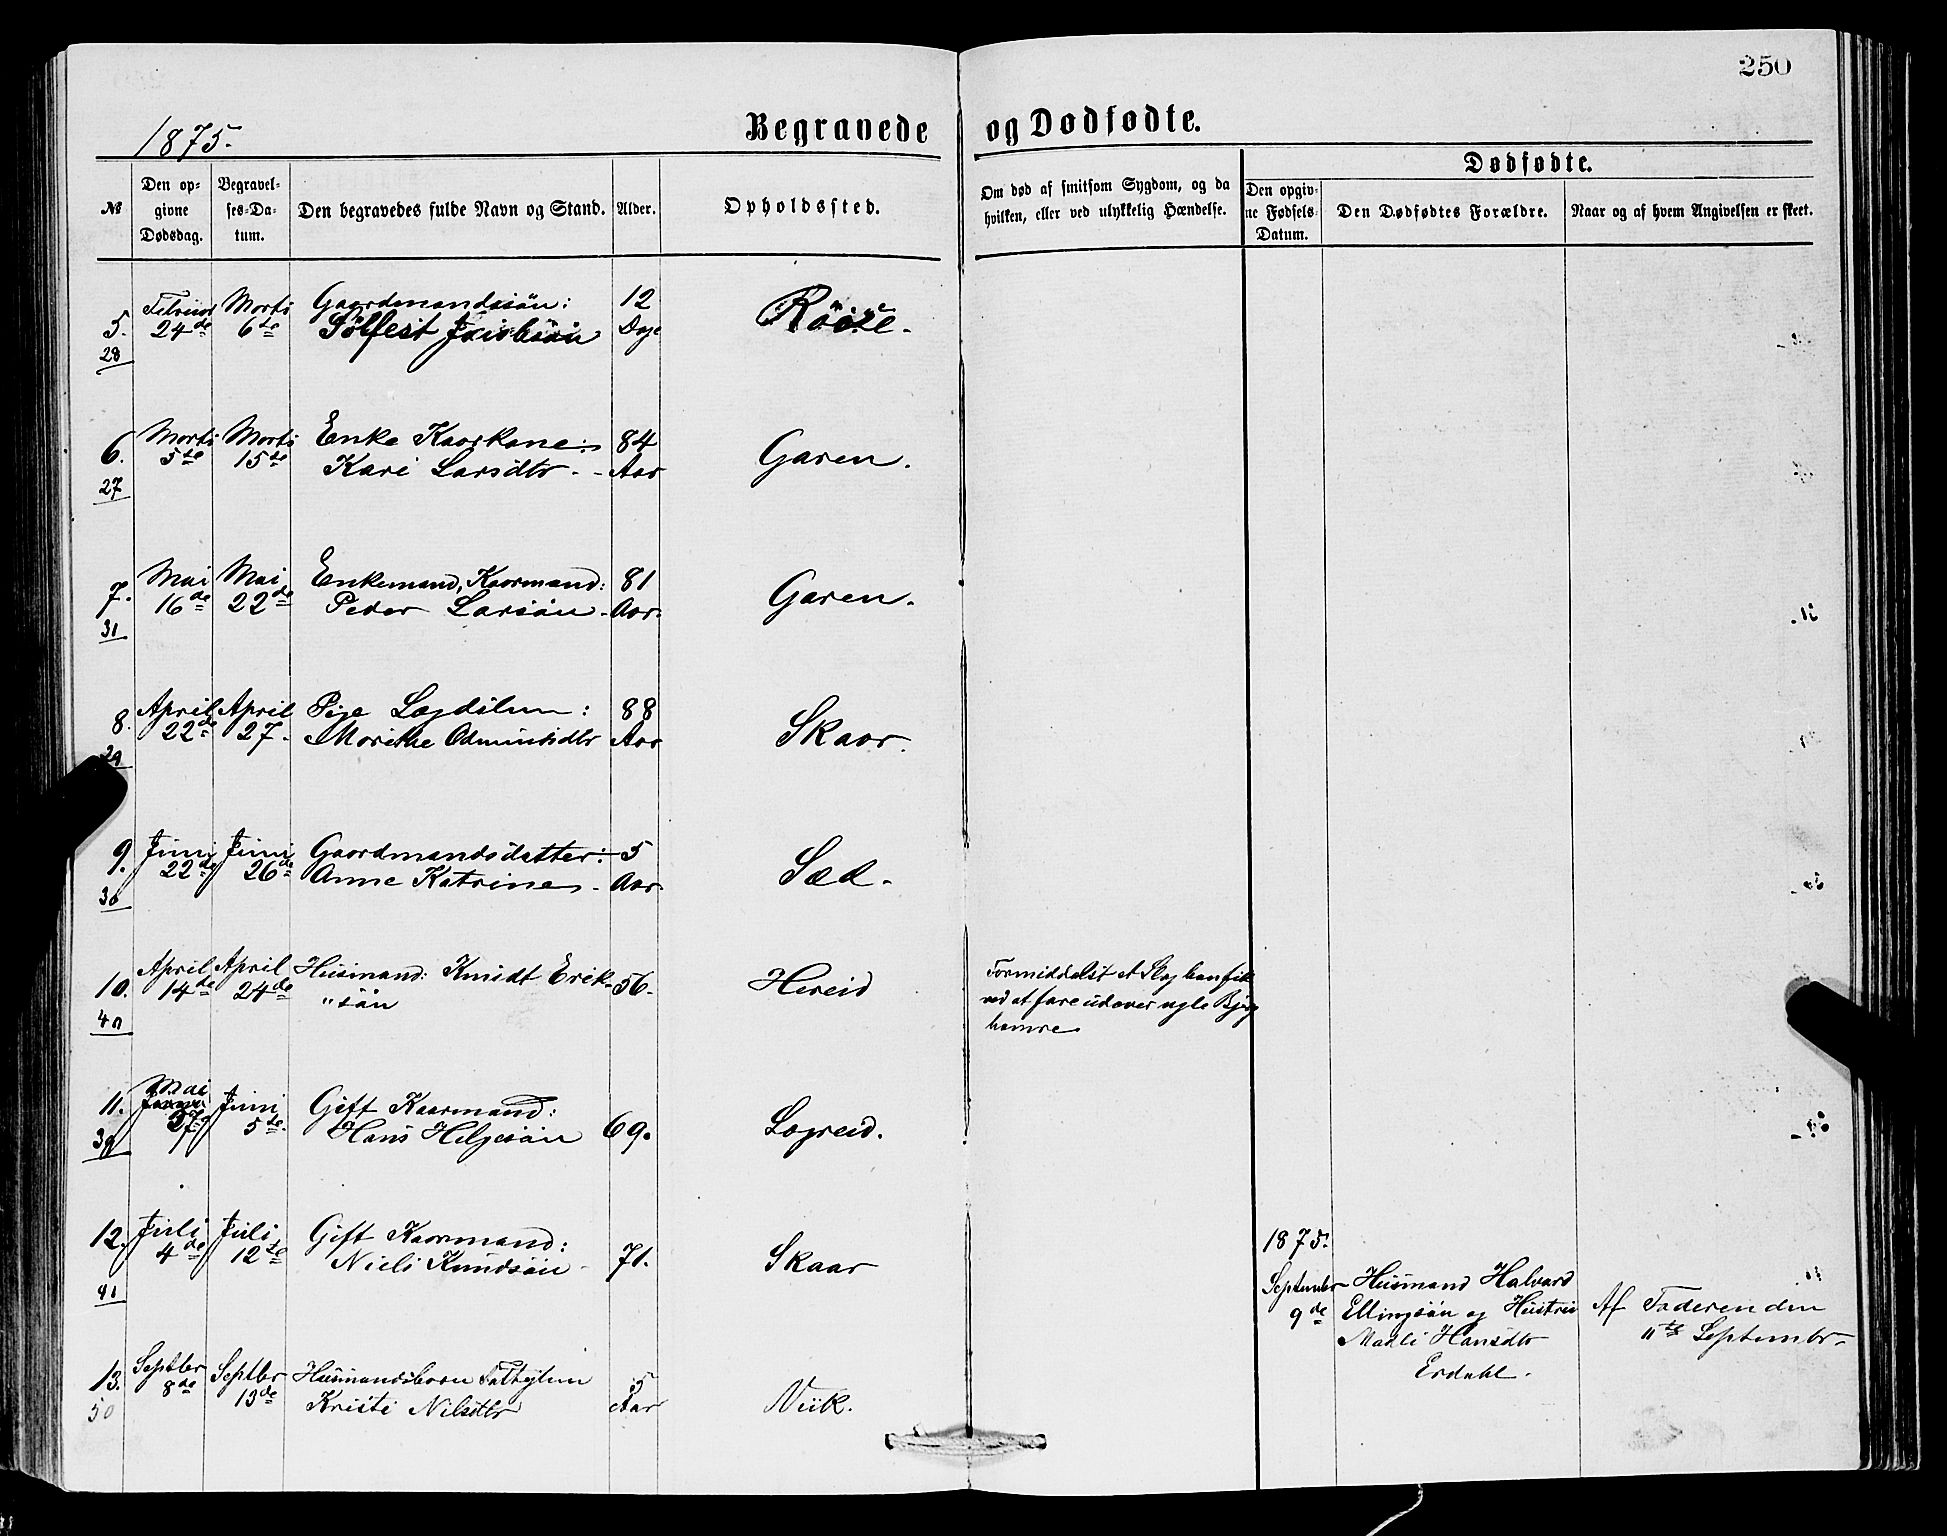 250
1875.
Begravede og Dødfødte.
№
Den op-
givne
Dødsdag.
Begravel-
ses-Da-
tum.
Den begravedes fulde Navn og Stand.
Alder.
Opholdssted.
Om død af smitsom Sygdom, og da
hvilken, eller ved ulykkelig Hændelse.
Dødfødte.
Den opgiv-
ne Fødsels-
Datum.
Den Dødfødtes Forældre.
Naar og af hvem Angivelsen er skeet.
Marts Gaardmandssön: 12
5. 24de 6te Sölfest Dage
28
Marts Marts Enke Kaarkone: 84 Garen.
6. 5te 15de Kari Larsdtr. Aar
27
Mai Mai Enkemand, Kaarmand: 81 Garen.
7. 16de 22de Peder Larsön. Aar.
31
April April Pige 88 Skaar.
8. 22de 27. Aar
29
Juni Juni Gaardmandsdatter: 5 Sæd.
9. 22de 26de Anne Katrine Aar
30
April April Husmand: Knudt Erik- 56. Hereid
10. 14de 24de "sön
40
Formiddelst et Slag han fik
ved at fare udover Bjerg
hamre
Mai
11. 27. Juni Gift Kaarmand:
5te Hans Helgesön 69. Lægreid.
39
12. Juli Juli Gift Kaarmand: Skaar
4de 12te Niels Knudsön 71.
41
1875.
September 9de Husmand Halvard
Ellingsön og Hustru
Madli Hansdtr
Erdahl.
Af Faderen den
11te September
13. Septbr Septbr Husmandsbarn 5 Viik.
8de 13de Kristi Nilsdtr Aar
50